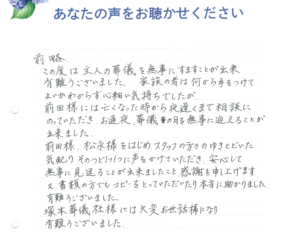 あなたの声をお聴かせください
前略
この度は主人の葬儀を無事にすますことが出来
有難うございました。家族の者は何から手をつけて
よいかわからず心細い気持ちでしたが
前田様には亡くなった時から夜遅くまで相談に
のっていただき お通夜、葬儀の日を無事に迎えることが
出来ました。
前田様、松永様をはじめスタッフの方々のゆきとどいた
気配り そのつどに声をかけていただき、安心して
無事に見送ることが出来ましたこと 感謝を申し上げます
又書類の方でもコピーをとっていただいたり本当に助かりました
有難うございました。
塚本葬儀社様には大変お世話様になり
有難うございました。